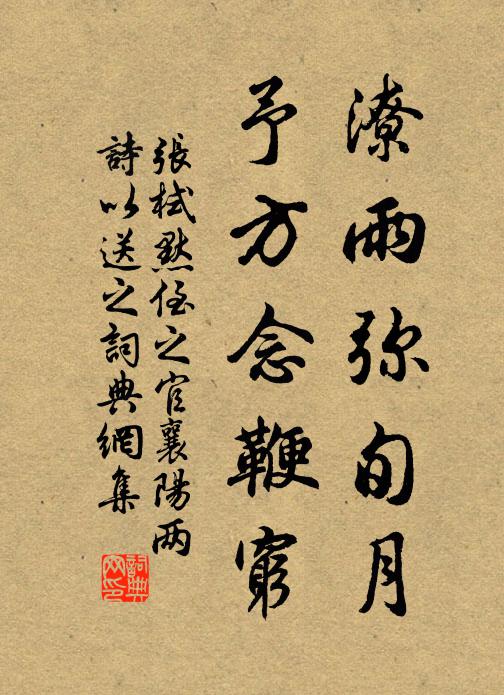 潦雨弥旬月
予方念鞭窮
張栻默侄之官襄陽两
詩以送之詞典網集
詞典网印